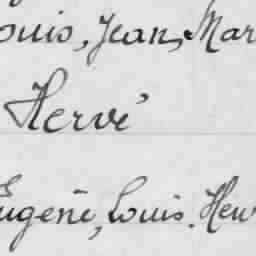 ouis, Jean, Mar
Hervé
Eugène, Louis. Hen